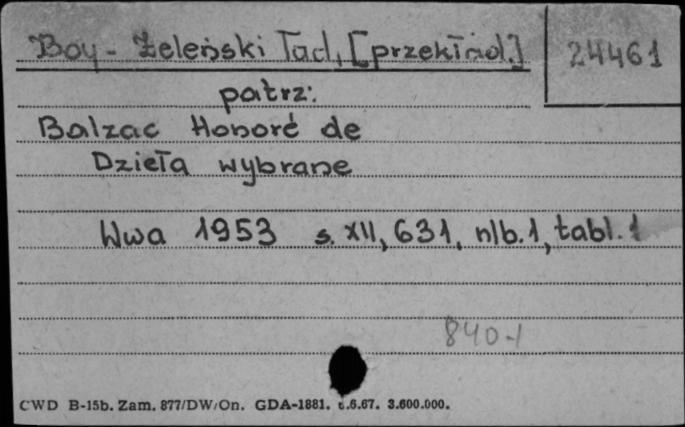 Boy-Żeleński Tad. [przekład.] 24461
patrz:
Balzac Honoré de
Dzieła wybrane
Wwa 1953 s. XII, 631, nlb. 1, tabl. 1
840-1
CWD B-15b. Zam. 877/DW/On. GDA-1881. 6.67. 3.600.000.